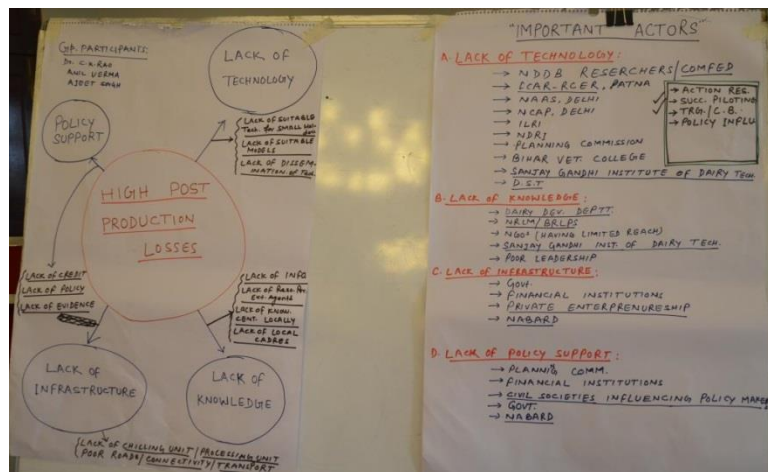 GP. PARTICIPANTS:
Dr. C.K. RAO
ANIL VERMA
AJEET SINGH
LACK OF
TECHNOLOGY
LACK OF SUITABLE
Tech. for SMALL
LACK OF SUITABLE
MODELS
LACK OF DISSEM-
INATION OF Tech.
POLICY
SUPPORT
HIGH POST
PRODUCTION
LOSSES
LACK OF CREDIT
LACK OF POLICY
LACK OF EVIDENCE
LACK OF INFO
LACK OF
Ext. Agents
LACK OF KNOW.
CENT. LOCALLY
LACK OF LOCAL
CADRES
LACK OF
INFRASTRUCTURE
LACK OF
KNOWLEDGE
LACK OF CHILLING UNIT / PROCESSING UNIT
POOR ROADS / CONNECTIVITY / TRANSPORT
"IMPORTANT ACTORS"
A. LACK OF TECHNOLOGY:
→ NDDB RESERCHERS/COMFED
→ ICAR-RCER, PATNA
→ NAAS, DELHI
→ NCAP, DELHI
→ ILRI
→ NDRI
→ PLANNING COMMISSION
→ BIHAR VET. COLLEGE
→ SANJAY GANDHI INSTITUTE OF DAIRY TECH.
→ D.S.T
→ ACTION RES.
✓ → SUCC. PILOTING
✓ → TRG./C.B.
→ POLICY INFLU
B. LACK OF KNOWLEDGE:
→ DAIRY DEV. DEPTT.
→ NRLM/BRLPS
→ NGOs (HAVING LIMITED REACH)
→ SANJAY GANDHI INST. OF DAIRY TECH.
→ POOR LEADERSHIP
C. LACK OF INFRASTRUCTURE:
→ GOVT.
→ FINANCIAL INSTITUTIONS
→ PRIVATE ENTERPRENEURSHIP
→ NABARD
D. LACK OF POLICY SUPPORT:
→ PLANNIG COMM.
→ FINANCIAL INSTITUTIONS
→ CIVIL SOCIETIES INFLUENCING POLICY MAKER
→ GOVT.
→ NABARD